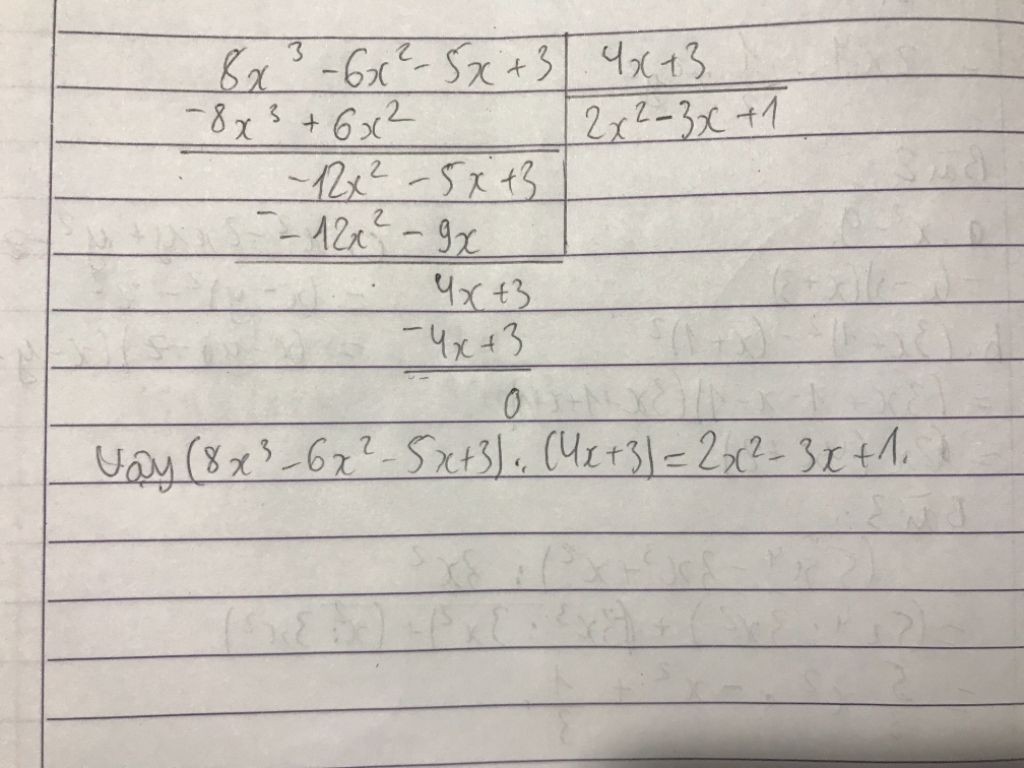 8x³ - 6x² - 5x + 3 | 4x + 3
- 8x³ + 6x² | 2x² - 3x + 1
-12x² - 5x + 3
- -12x² - 9x
4x + 3
- 4x + 3
0
Vậy (8x³ - 6x² - 5x + 3) : (4x + 3) = 2x² - 3x + 1.